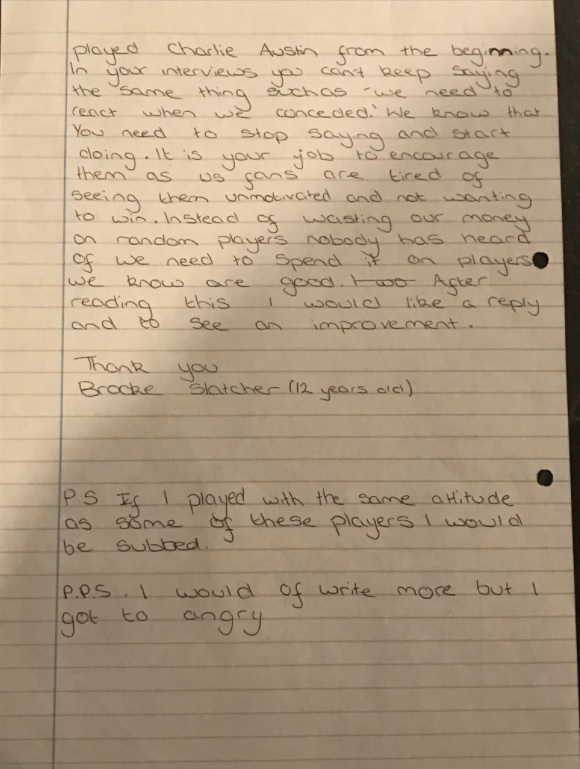 played Charlie Austin from the beginning.
In your interviews you can't keep saying
the same thing such as 'we need to
react when we conceded.' We know that
You need to stop saying and start
doing. It is your job to encourage
them as us fans are tired of
seeing them unmotivated and not wanting
to win. Instead of wasting our money
on random players nobody has heard
of we need to spend it on players
we know are good. After
reading this I would like a reply
and to see an improvement.
Thank you
Brooke Slatcher (12 years old)
PS If I played with the same attitude
as some of these players I would
be subbed.
P.P.S. I would of write more but I
got to angry